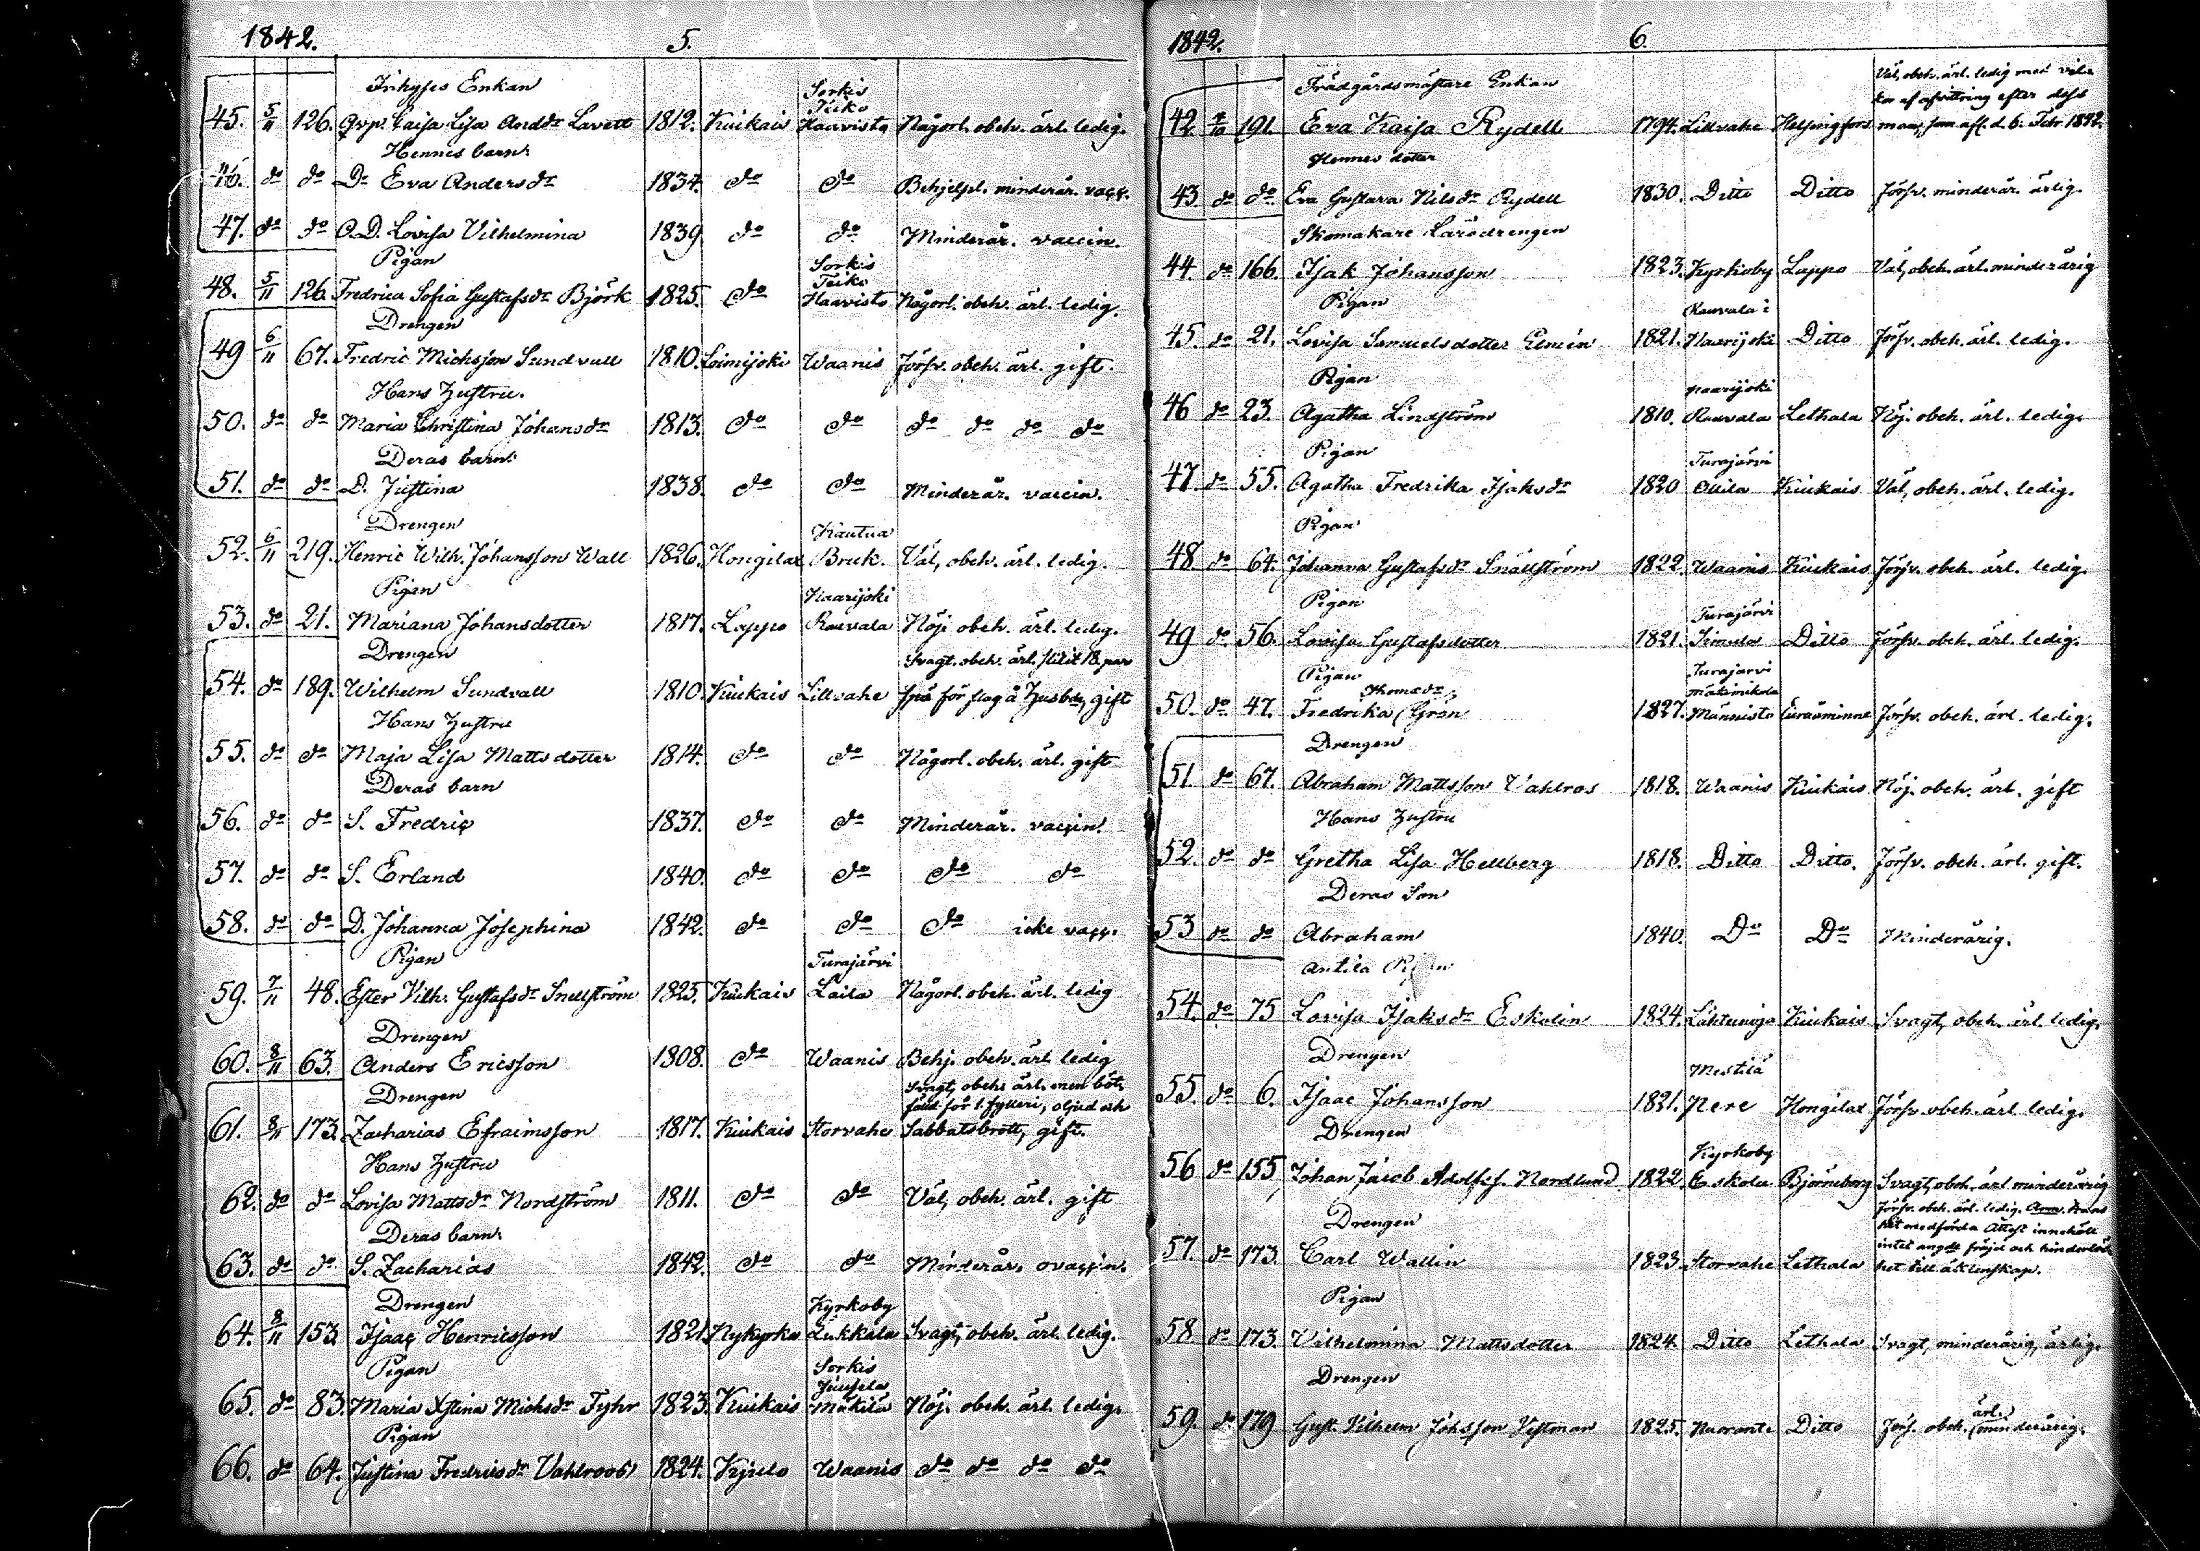 1842. 5.
Inhyses Enkan
45. 5/11 126. Qvp. Caisa Lisa Andsdr Lavett 1812. Kiukais Sorkis Teiko Haavisto Någorl. obeh. ärl. ledig.
Hennes barn.
46. do do D. Eva Andersdr 1834. do do Behjelpl. minderår. vacc.
47. do do O.D. Lovisa Vilhelmina 1839 do do Minderår. vaccin.
Pigan
48. 5/11 126. Fredrica Sofia Gustafsdr Björk 1825. do Sorkis Teiko Haavisto Någorl. obeh. ärl. ledig.
Drengen
49 6/11 67. Fredric Michsson Sundvall 1810. Loimijoki Waanis Försv. obeh. ärl. gift.
Hans Hustru.
50. do do Maria Christina Johansdr 1813. do do do do do do
Deras barn.
51. do do D. Justina 1838. do do Minderår. vaccin.
Drengen
52. 6/11 219. Henric Wilh. Johansson Wall 1826. Hongilax Kautua Bruk. Väl, obeh. ärl. ledig.
Pigan
53. do 21. Mariana Johansdotter 1817. Lappo Naarijoki Rauvala Nöj. obeh. ärl. ledig.
Drengen
54. do 189. Wilhelm Sundvall 1810. Kiukais Lillvahe Svagt. obeh. ärl. slitit 18 par spö för slag å Husb., gift
Hans Hustru
55. do do Maja Lisa Mattsdotter 1814. do do Någorl. obeh. ärl. gift
Deras barn
56. do do S. Fredric 1837. do do Minderår. vaccin.
57. do do S. Erland 1840. do do do do
58. do do D. Johanna Josephina 1842. do do do icke vacc.
Pigan
59. 7/11 48. Ester Vilh. Gustafsdr Snellström 1825. Kiukais Turajärvi Laila Någorl. obeh. ärl. ledig
Drengen
60. 8/11 63. Anders Ericsson 1808. do Waanis Behj. obeh. ärl. ledig
Drengen
61. 8/11 173. Zacharias Efraimsson 1817. Kiukais Storvahe Svagt, obeh. ärl. men böt. fäld för 1. fylleri, oljud och Sabbatsbrott, gift.
Hans Hustru
62. do do Lovisa Mattsdr Nordström 1811. do do Väl, obeh. ärl. gift
Deras barn.
63. do do S. Zacharias 1842. do do Minderår. ovaccin.
Drengen
64. 8/11 153 Isaac Henricsson 1821. Nykyrko Kyrkoby Lukkala Svagt, obeh. ärl. ledig.
Pigan
65. do 83. Maria Xstina Michsdr Fyhr 1823. Kiukais Sorkis Jussela Mäkilä Nöj. obeh. ärl. ledig.
Pigan
66. do 64. Justina Fredricsdr Vahlroos 1824. Kjulo Waanis do do do do
1842. 6.
Trädgårdsmästare Enkan
42 191. Eva Kaisa Rydell 1794. Lillvahe Helsingfors Väl, obeh. ärl. ledig med vilkor af afvittring efter dess man, som afl. d. 6. Febr 1842.
Hennes dotter
43. do do Eva Gustava Nilsdr Rydell 1830. Ditto Ditto Försv. minderår. ärlig.
Skomakare Lärodrengen
44. do 166. Isak Johansson 1823. Kyrkoby Lappo Väl, obeh. ärl. minderårig
Pigan
45. do 21. Lovisa Samuelsdotter Elmén 1821. Rauvala i Naarijoki Ditto Försv. obeh. ärl. ledig.
Pigan
46 do 23. Agatha Lindström 1810. Naarijoki Rauvala Lethala Nöj. obeh. ärl. ledig.
Pigan
47 do 55. Agatha Fredrika Isaksdr 1820 Turajärvi Ollila Kiukais Väl, obeh. ärl. ledig.
Pigan
48 do 64. Johanna Gustafsdr Snällström 1822. Waanis Kiukais Försv. obeh. ärl. ledig.
Pigan
49 do 56. Lovisa Gustafsdotter 1821. Turajärvi Simula Ditto Försv. obeh. ärl. ledig.
Pigan
50. do 47. Fredrika Thomasdr Grön 1827. Turajärvi Männistö Euraåminne Försv. obeh. ärl. ledig.
Drengen
51 do 67. Abraham Mattsson Vahlros 1818. Waanis Kiukais Nöj. obeh. ärl. gift
Hans Hustru
52. do do Gretha Lisa Hellberg 1818. Ditto Ditto. Försv. obeh. ärl. gift.
Deras Son
53 do do Abraham 1840. Do Do Minderårig.
Antila Pigan
54. do 75 Lovisa Isaksdr Eskolin 1824. Lähteenoja Kiukais Svagt, obeh. ärl. ledig.
Drengen
55. do 6. Isaac Johansson 1821. Mestilä Pere Hongilax Försv. obeh. ärl. ledig.
Drengen
56 do 155 Johan Jacob Adolfsf. Nordlund 1822. Kyrkoby Eskola Björneborg Svagt, obeh. ärl. minderårig
Drengen
57. do 173. Carl Wallin 1823. Storvahe Lethala Försv. obeh. ärl. ledig. Anm. Hans hit medförda Attest innehöll intet angde fräjd och hinderlöshet till äktenskap.
Pigan
58 do 173. Vilhelmina Mattsdotter 1824. Ditto Lethala Svagt, minderårig, ärlig.
Drengen
59. do 179 Gust. Vilhelm Johsson Vestman 1825. Nuoranta Ditto Förs. obeh. ärl. minderårig.